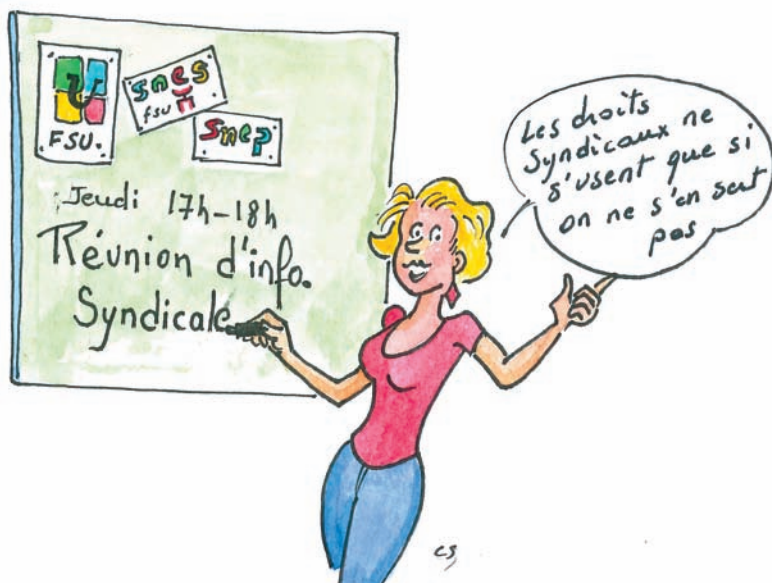 FSU.
snes
fsu
snep
Jeudi 17h-18h
Réunion d'info.
Syndicale
Les droits
Syndicaux ne
s'usent que si
on ne s'en sert
pas
cs